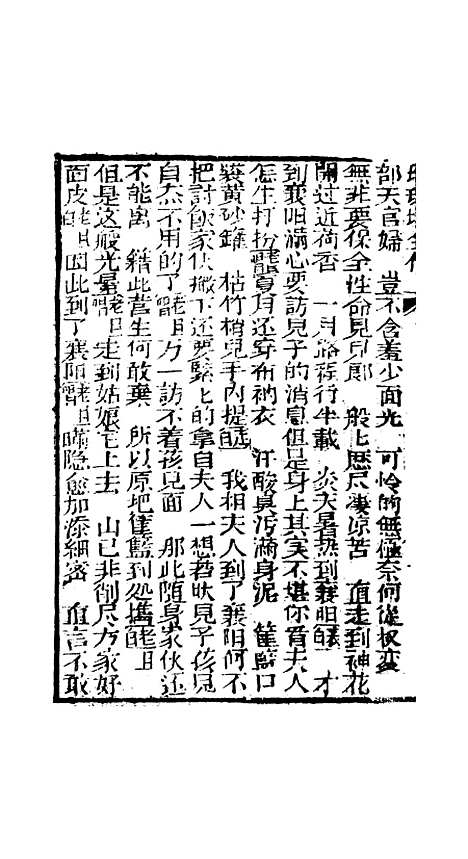 部天官婦　豈不含羞少面光　可怜的無極奈何從权变
無非要保全性命見兒郎　般比歷尽凄凉苦　直走到神花
開过近荷香　一月路程行半載　炎天暑热到襄阳　才
到襄阳滿心要訪兒子的消息但是身上其实不堪你看夫人
怎生打扮　夏頂还穿布衲衣　汗酸臭污滿身泥　筐籃口
裏黄砂鑵　枯竹梢兒手内提　我想夫人到了襄阳何不
把討飯家伙撇下还要緊上的拿自夫人一想若呒見子孩兒
自杰不用的了　方一訪不着孩兒面　那此随身家伙还
不能离　籍此营生何敢棄　所以原地筐籃到処携
但是这般光景　走到姑娘宅上去　山已非削尽方家好
面皮　因此到了襄阳　瞒隐愈加添細密　直言不敢